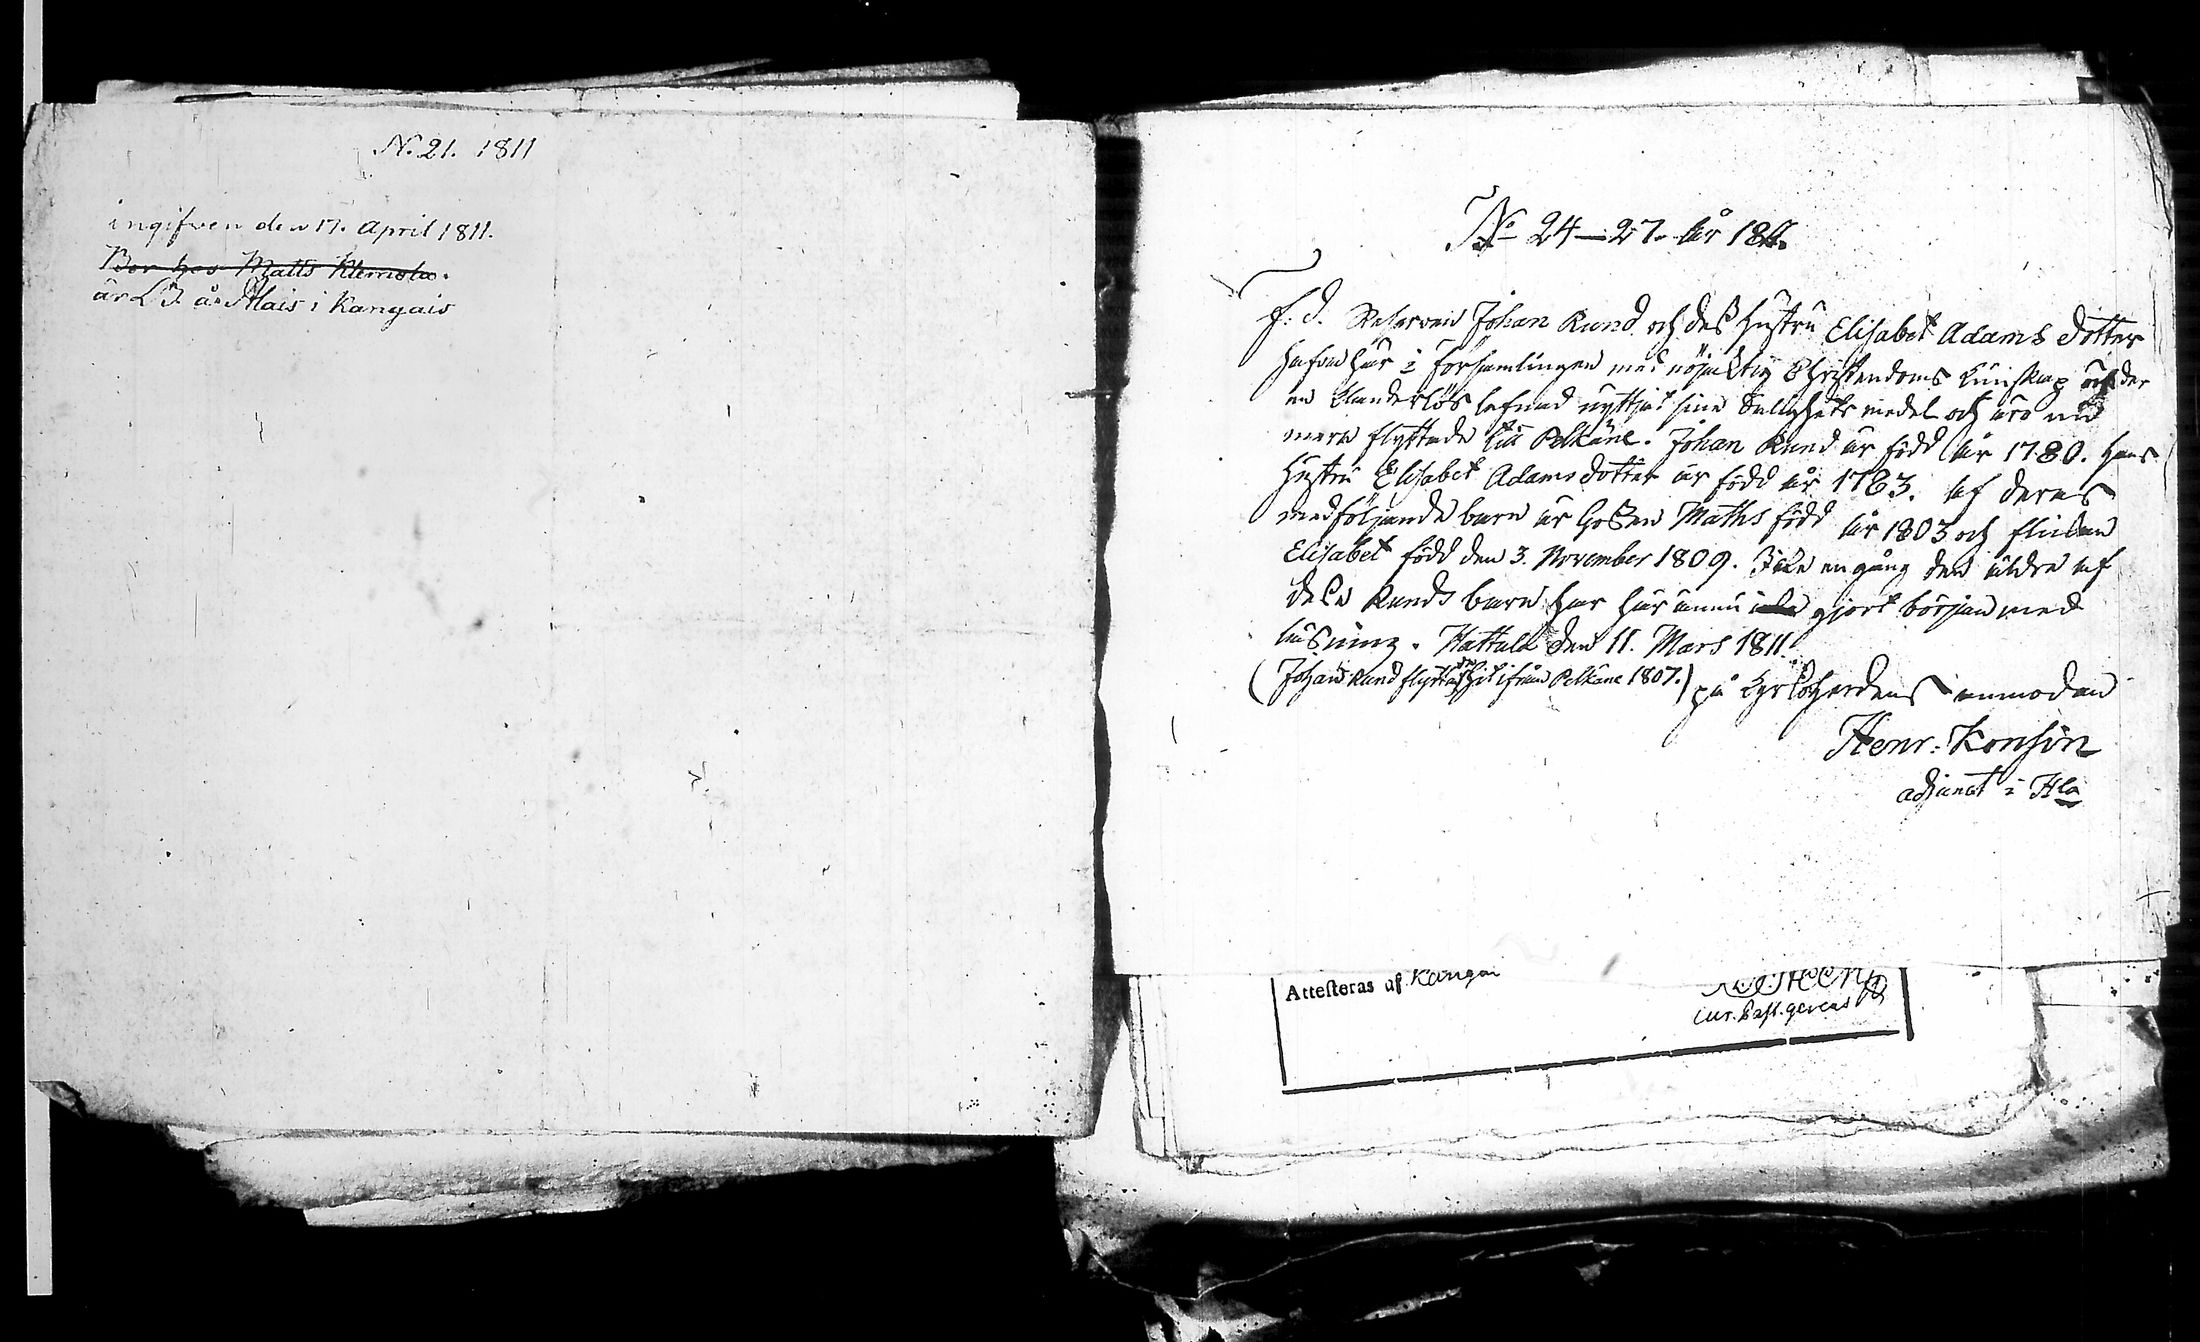 N. 21. 1811
ingifven den 17. April 1811.
Bor hos Matts Klemola.
är på Alais i Kangais
No 24–27. år 1811.
f. d. Reserven Johan Rund och dess hustru Elisabet Adams dotter
hafva här i församlingen med nöjaktig Christendoms kunskap under
en klanderlös lefnad nyttjat sina Salighets medel och äro nu
mera flyttade till Pelkäne. Johan Rund är född år 1780. hans
hustru Elisabet Adams dotter är född år 1783. af deras
medföljande barn är Gossen Maths född år 1803 och flickan
Elisabet född den 3. November 1809. Icke en gång den äldre af
dessa Runds barn har här ännu icke gjort början med
läsning. Hattula den 11. Mars 1811.
(Johan Rund flyttade hit ifrån Pelkäne 1807.) på Kyrkoherdens anmodan
Henr: Konsin
adjunct i Hla
Attesteras af Kangai
cur. past. gerens